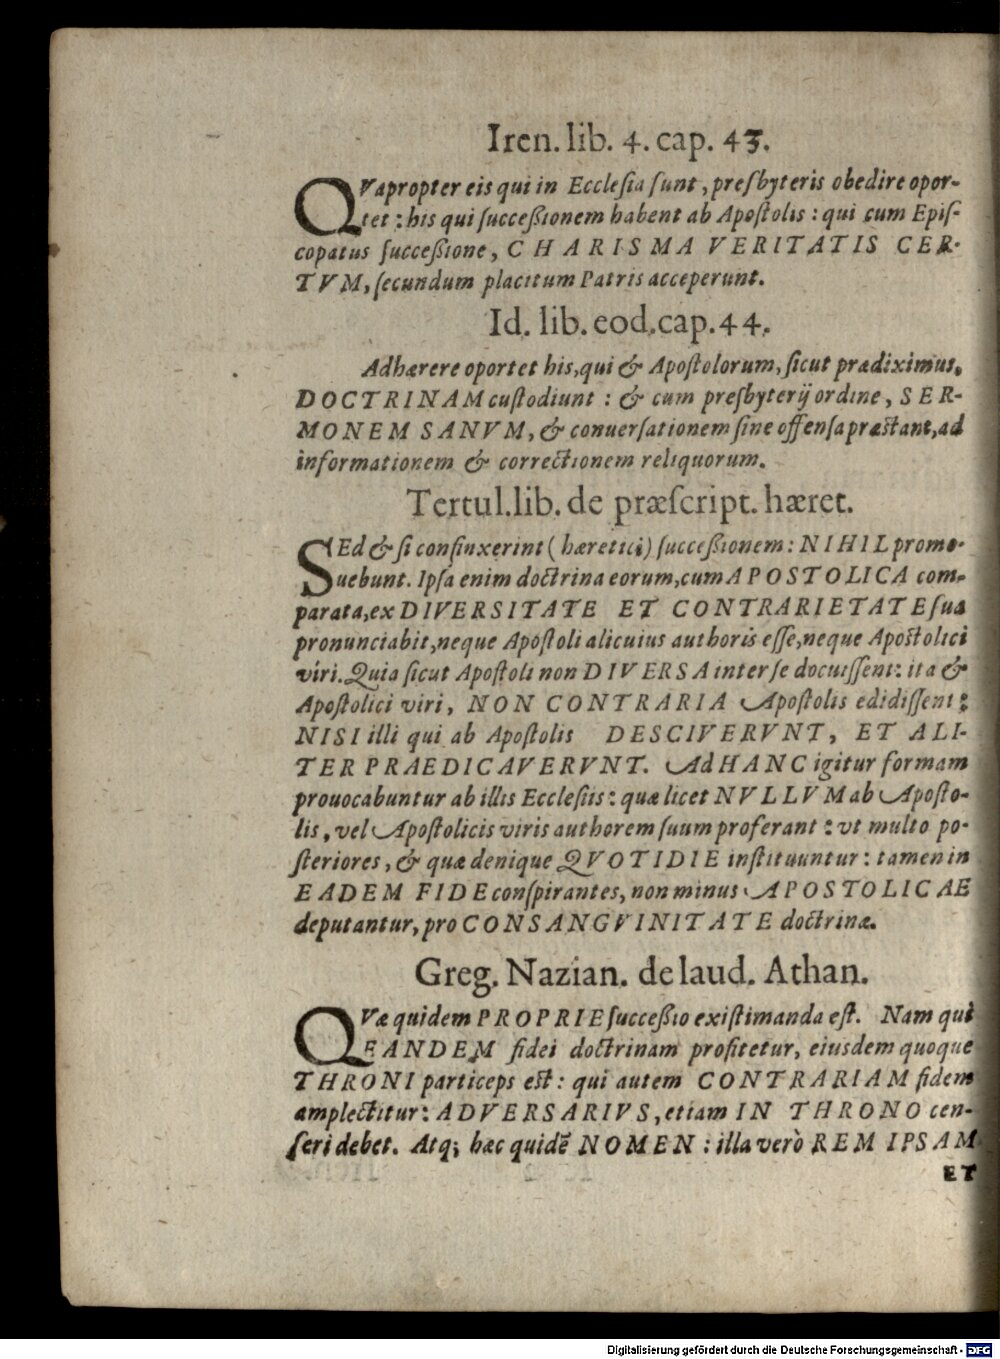 Iren. lib. 4. cap. 43.
QVapropter eis qui in Ecclesia sunt, presbyteris obedire opor-
tet: his qui successionem habent ab Apostolis: qui cum Epis-
copatus successione, CHARISMA VERITATIS CER-
TVM, secundum placitum Patris acceperunt.
Id. lib. eod. cap. 44.
Adhærere oportet his, qui & Apostolorum, sicut prædiximus,
DOCTRINAM custodiunt: & cum presbyterij ordine, SER-
MONEM SANVM, & conuersationem sine offensa præstant, ad
informationem & correctionem reliquorum.
Tertul. lib. de præscript. hæret.
SEd & si confinxerint (hæretici) successionem: NIHIL promo-
uebunt. Ipsa enim doctrina eorum, cum APOSTOLICA com-
parata, ex DIVERSITATE ET CONTRARIETATE sua
pronunciabit, neque Apostoli alicuius authoris esse, neque Apostolici
viri. Quia sicut Apostoli non DIVERSA inter se docuissent: ita &
Apostolici viri, NON CONTRARIA Apostolis edidissent:
NISI illi qui ab Apostolis DESCIVERVNT, ET ALI-
TER PRAEDICAVERVNT. Ad HANC igitur formam
prouocabuntur ab illis Ecclesiis: quæ licet NVLLVM ab Aposto-
lis, vel Apostolicis viris authorem suum proferant: vt multo po-
steriores, & quæ denique QVOTIDIE instituuntur: tamen in
EADEM FIDE conspirantes, non minus APOSTOLICAE
deputantur, pro CONSANGVINITATE doctrinæ.
Greg. Nazian. de laud. Athan.
QVæ quidem PROPRIE successio existimanda est. Nam qui
EANDEM fidei doctrinam profitetur, eiusdem quoque
THRONI particeps est: qui autem CONTRARIAM fidem
amplectitur: ADVERSARIVS, etiam IN THRONO cen-
seri debet. Atq; hæc quidē NOMEN: illa verò REM IPSAM
ET
Digitalisierung gefördert durch die Deutsche Forschungsgemeinschaft - DFG